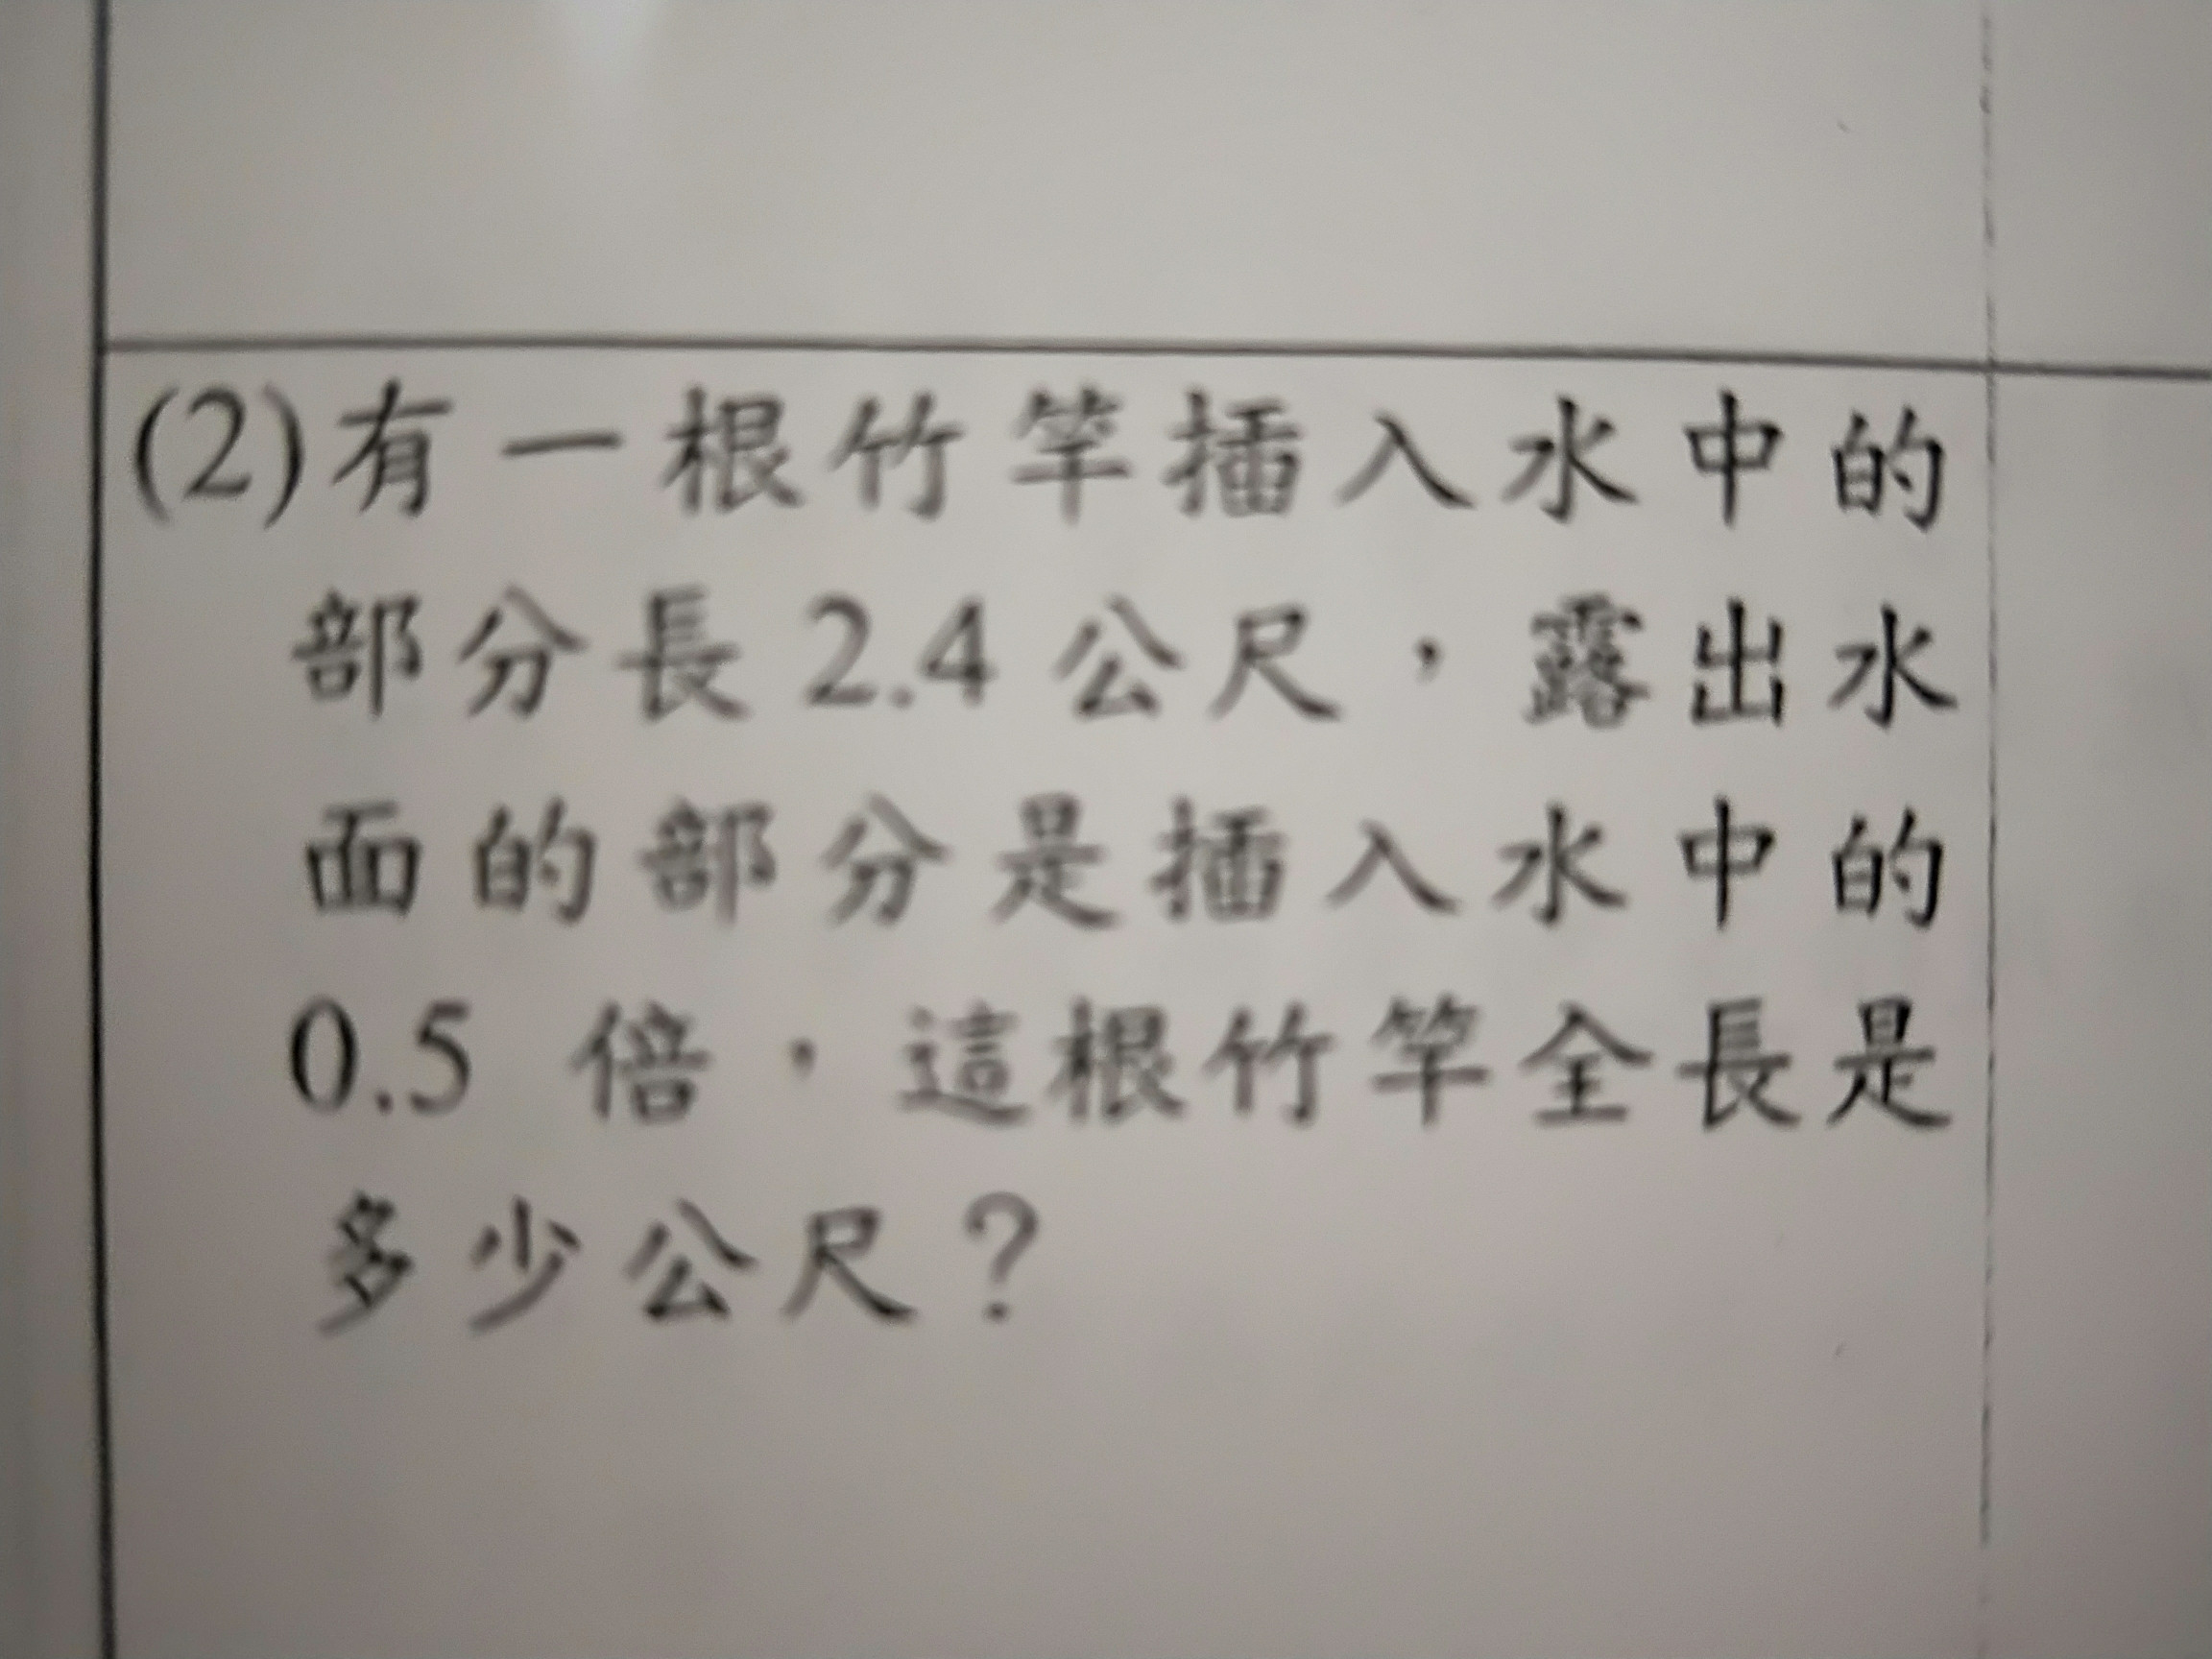 (2)有一根竹竿插入水中的
部分長 2.4 公尺，露出水
面的部分是插入水中的
0.5 倍，這根竹竿全長是
多少公尺？